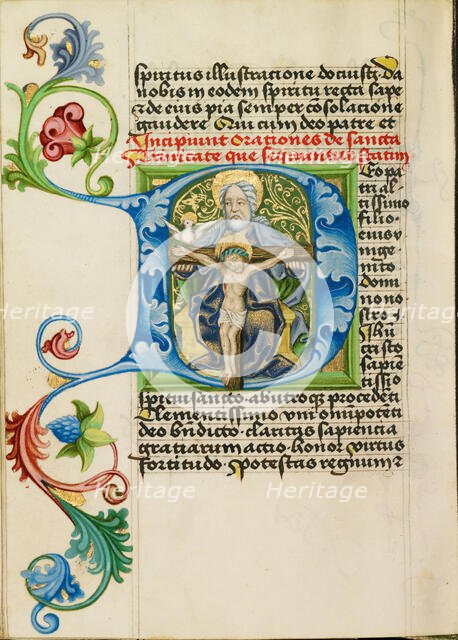 spiritus illustracione docustꝫ da
nobis in eodem spiritu recti sape
⁊ de eius pia semper cōsolacione
gaudere Qui cum deo patre et
Incipiunt orationes de sancta
trinitate que statim
Eo pa
tri al
tissimo
filio
eius v
nige
nito
domi
no no
stro
Jhū
cristo
sapiē
tissīo
spiritui sancto ab utroqꝫ procedēti
Clementissimo vni om̄ipotēti
deo bn̄dicto claritas sapientia
gratiarum actio honor virtus
fortitudo potestas regnum ⁊
Heritage
Heritage
Heritage
Heritage
Heritage
Heritage